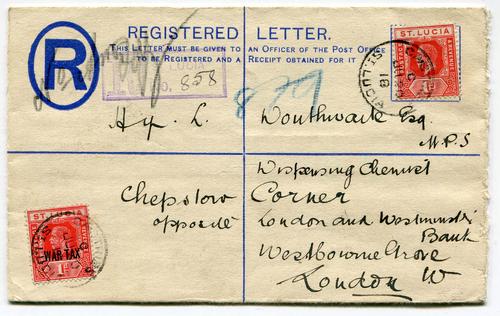 REGISTERED LETTER.
THIS LETTER MUST BE GIVEN TO AN OFFICER OF THE POST OFFICE
TO BE REGISTERED AND A RECEIPT OBTAINED FOR IT.
R
ST. LUCIA
POSTAGE
1D
ST. LUCIA
NO. 858
858
Hy. L. Douthwaite Esq
M.P.S
Dispensing Chemist
Chepstow Corner
opposite London and Westminster
Bank
Westbourne Grove
London W
ST. LUCIA
WAR TAX
1D